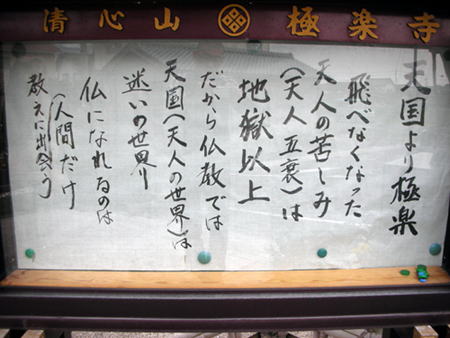 清心山 極楽寺
天国より極楽
飛べなくなった
天人の苦しみ
(天人五衰)は
地獄以上
だから仏教では
天国(天人の世界)は
迷いの世界!!
仏になれるのは
(人間だけ
教えに出会う